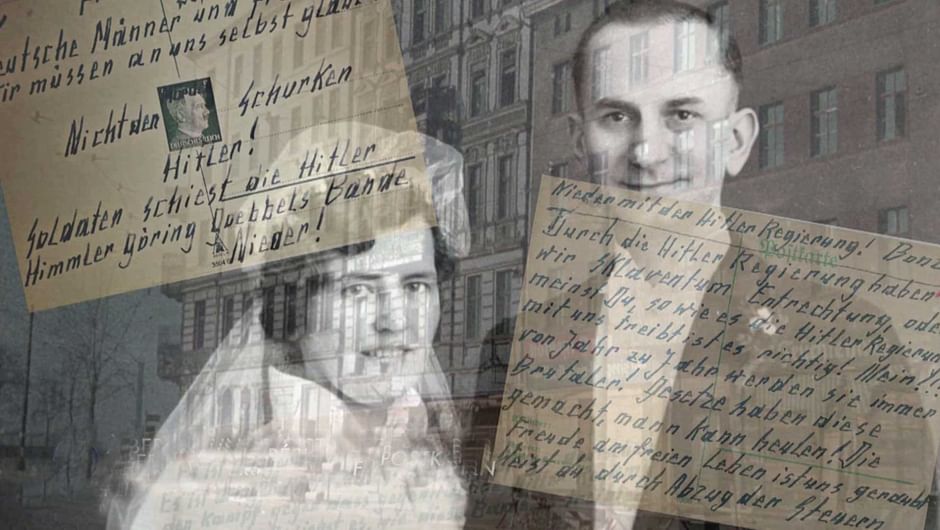 deutsche Männer und
wir müssen an uns selbst
Nicht den Schurken
Hitler!
Soldaten schiest die Hitler
Himmler göring Goebbels Bande
Nieder!
Nieder mit der Hitler Regierung!
Durch die Hitler Regierung haben
wir Sklaventum Entrechtung, ode
meinst Du, so wie es die Hitler Regierun
mit uns treibt ist es richtig! Nein!!!
von Jahr zu Jahr werden sie immer
Brutaler! Gesetze haben diese
gemacht, mann kann heulen! Die
Freude am freien Leben ist uns geraubt
Meist du durch Abzug der Steuern
Postkarte